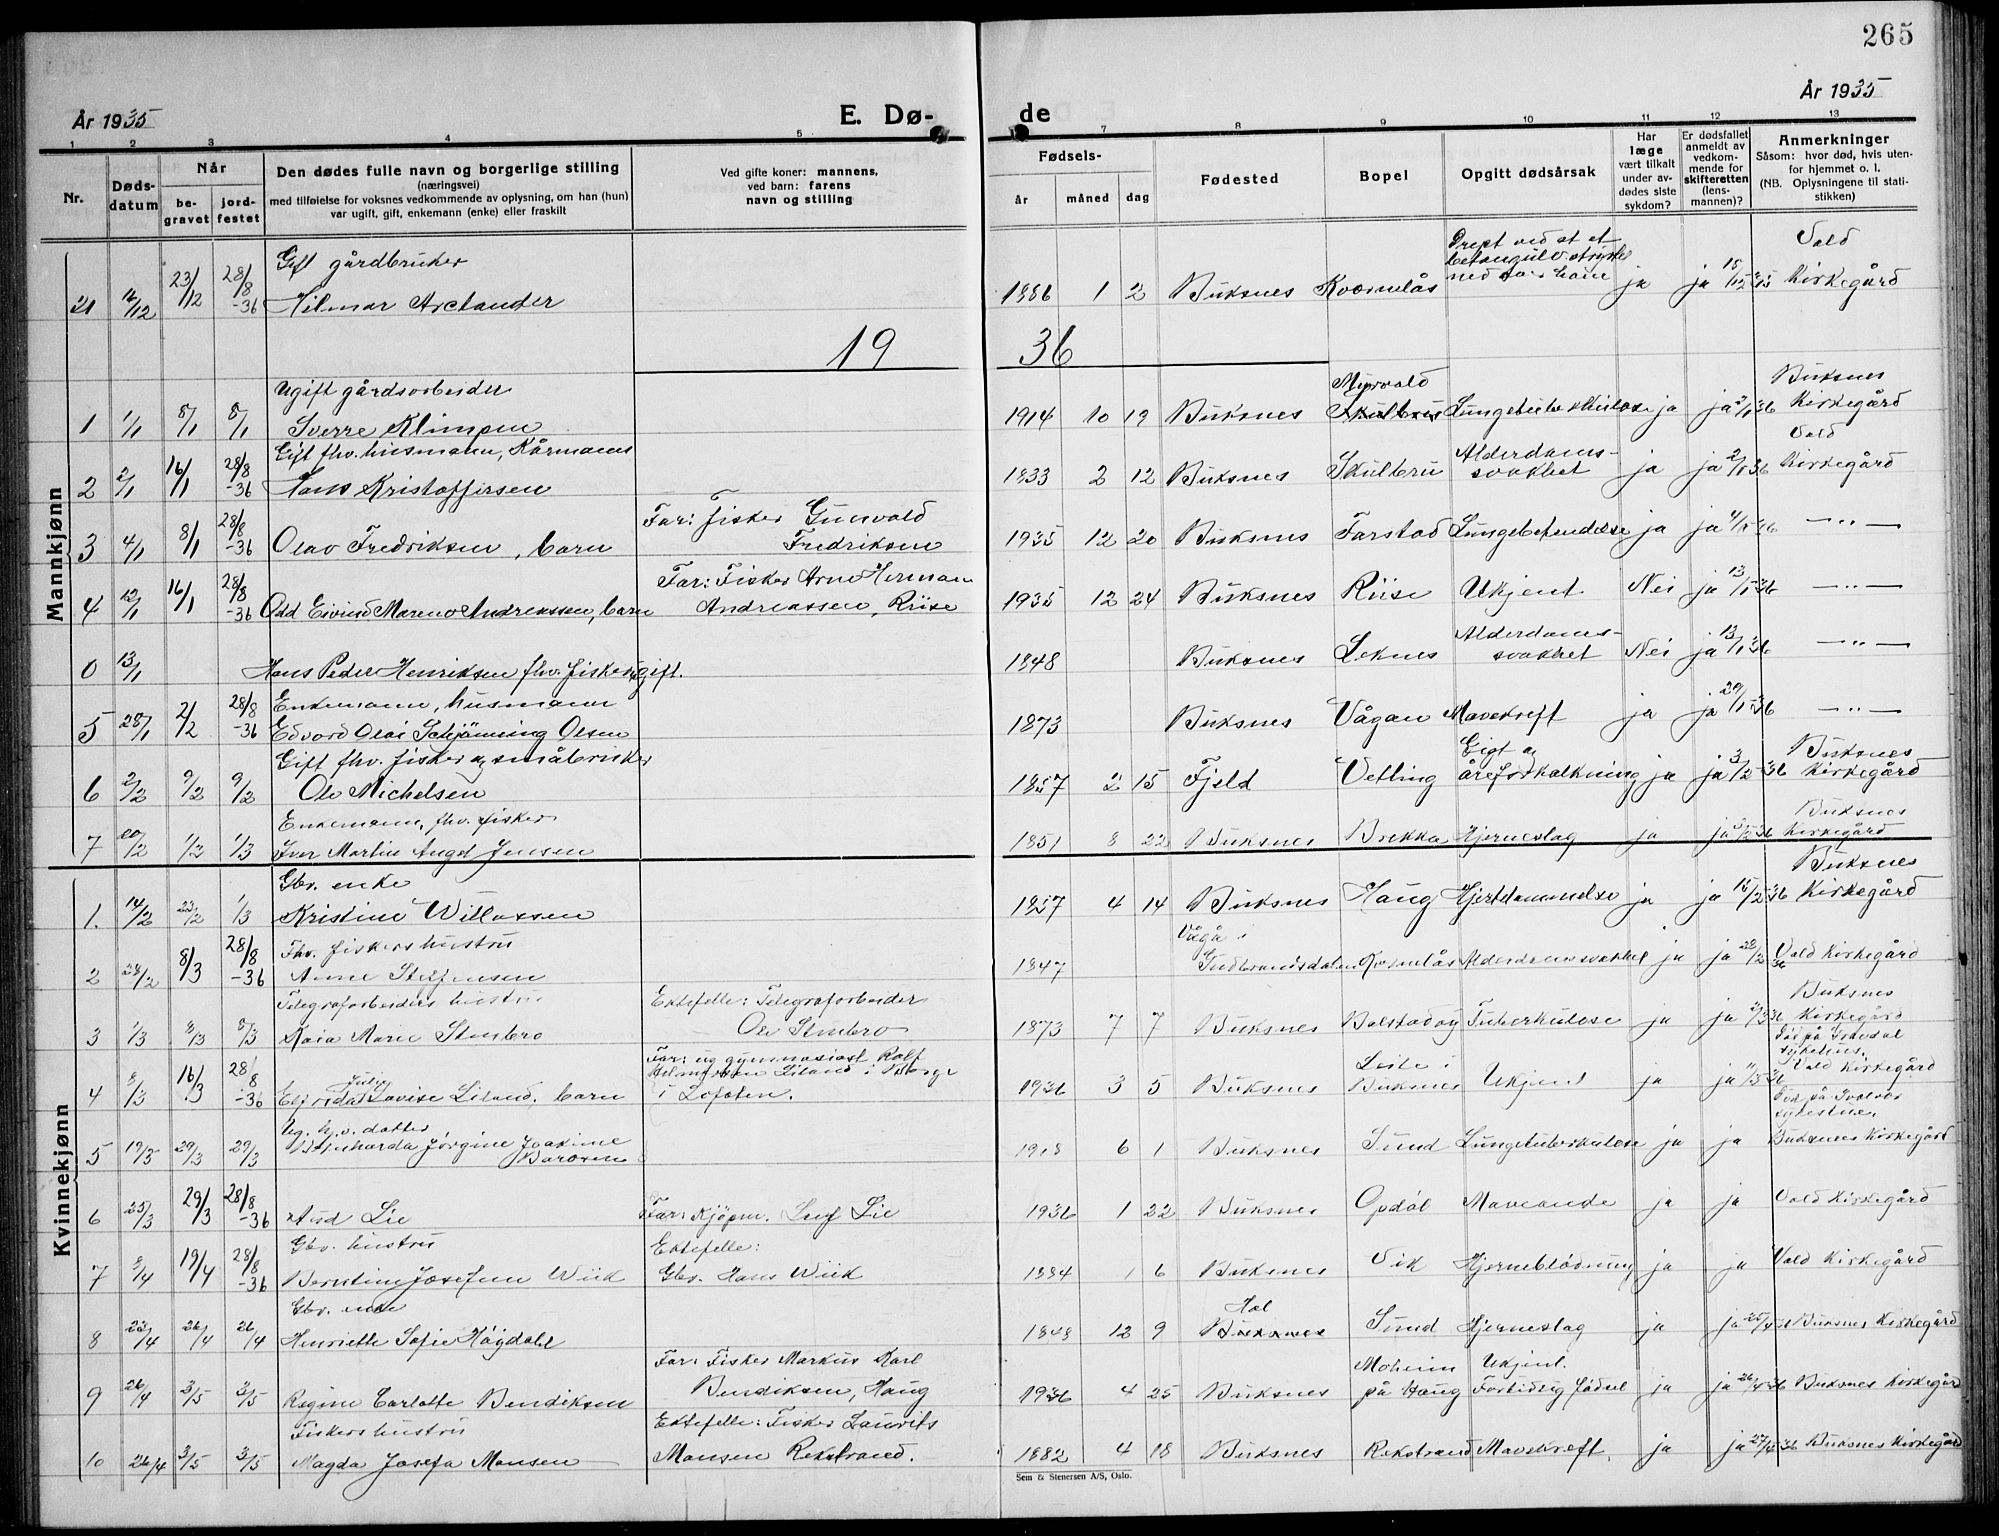 265
År 1935 E. Dø- de År 1935
1 2 3 4 5 7 8 9 10 11 12 13
Nr. Døds-datum Når be-gravet jord-festet
Den dødes fulle navn og borgerlige stilling
(næringsvei)
med tilføielse for voksnes vedkommende av oplysning, om han (hun)
var ugift, gift, enkemann (enke) eller fraskilt
Ved gifte koner: mannens,
ved barn: farens
navn og stilling
Fødsels- år måned dag
Fødested Bopel Opgitt dødsårsak
Har læge vært tilkalt under av-dødes siste sykdom?
Er dødsfallet anmeldt av vedkom-mende for skifteretten (lens-mannen)?
Anmerkninger
Såsom: hvor død, hvis uten-
for hjemmet o. l.
(NB. Oplysningene til stati-
stikken)
Mannkjønn
Gift gårdbruker
21 23/12 28/8 -36 Hilmar Arctander 1886 1 2 Buksnes Kvernelås ja ja Vold Kirkegård
1936
Ugift gårdsarbeider
1 1/1 8/1 8/1 Sverre Klimpen 1914 10 19 Buksnes Myrvold Lungetuberkulose ja ja Buksnes Kirkegård
Gift fhv. husmann, Kårmann
2 2/1 16/1 28/8 -36 Hans Kristoffersen 1833 2 12 Buksnes Skulbru Alderdoms-svakhet ja ja Vold Kirkegård
3 4/1 8/1 28/8 -36 Olav Fredriksen, barn Far: fisker Gunvald Fredriksen 1935 12 20 Buksnes Farstad Lungebetendelse ja ja —"—
4 12/1 16/1 28/8 -36 Odd Eivind Mareno Andreassen, barn Far: Fisker Arne Herman Andreassen, Riise 1935 12 24 Buksnes Riise Ukjent. Nei ja 13/1 36 —"—
0 13/1 Hans Peder Henriksen fhv. fisker, gift. 1848 Buksnes Leknes Alderdoms-svakhet Nei ja 13/1 36 —"—
Enkemann, husmann
5 28/1 2/2 28/8 -36 Edvard Olai Schjønning Olsen 1873 Buksnes Vågan Mavekreft ja ja 29/1 36 —"—
Gift fhv. fisker og småbruker
6 2/2 9/2 9/2 Ole Michelsen 1857 2 15 Fjeld Vetting Gigt og åreforkalkning ja ja 3/2 36 Buksnes Kirkegård
Enkemann, fhv. fisker
7 20/2 1/3 1/3 Iver Martin Angel Jensen 1851 8 22 Buksnes Brekka Hjerneslag ja ja Buksnes Kirkegård
Kvinnekjønn
Gbr. enke
1. 14/2 23/2 1/3 Kristine Willassen 1857 4 14 Buksnes Haug Hjertelammelse ja ja 15/2 36 Buksnes Kirkegård
Fhv. fiskers hustru
2 28/2 8/3 28/8 -36 Anne Steffensen 1847 Vågå i Gudbrandsdalen Kvernelås Alderdomssvakhet ja ja 28/2 36 Vold Kirkegård
Telegrafarbeiders hustru
3 1/3 8/3 8/3 Kaia Marie Stenbro Ektefelle: Telegrafarbeider Ole Stenbro 1873 7 7 Buksnes Balstadøy Tuberkulose ja ja Buksnes Kirkegård
4 8/3 16/3 28/8 -36 Lovise Liland, barn Far: ug gymnasiast Rolf Liland i Borge i Lofoten. 1936 3 5 Buksnes Leite i Buksnes Ukjent ja ja Vold Kirkegård
Ug. h.v. datter
5 19/3 29/3 29/3 Jørgine Joakime 1918 6 1 Buksnes Sund Lungetuberkulose ja ja Buksnes Kirkegård
6 25/3 29/3 28/8 -36 Aud Lie Far: Kjøpm. Leif Lie 1936 1 22 Buksnes Opdøl Maveonde ja ja Vold Kirkegård
Gbr. hustru
7 9/4 19/4 28/8 -36 Berntine Josefine Wiik Ektefelle: Gbr. Hans Wiik 1884 1 6 Buksnes Vik Hjerneblødning ja ja Vold Kirkegård
Gbr. enke
8 23/4 26/4 26/4 Henriette Sofie Høgdahl 1848 12 9 Hol Buksnes Sund Hjerneslag ja ja Buksnes Kirkegård
9 26/4 3/5 3/5 Regine Carlotte Bendiksen Far: Fisker Markus Karl Bendiksen, Haug 1936 4 25 Buksnes Moheim på Haug Ukjent. Fortidlig fødsel ja ja Buksnes Kirkegård
Fiskers hustru
10 26/4 3/5 3/5 Magda Josefa Monsen Ektefelle: Fisker Laurits Monsen Rekstrand. 1882 4 18 Buksnes Rekstrand Mavekreft. ja ja 27/4 36 Buksnes Kirkegård
Sem & Stenersen A/S, Oslo.